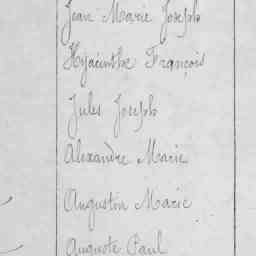 Jean Marie Joseph
Hyacinthe François
Jules Joseph
Alexandre Marie
Augustin Marie
Auguste Paul